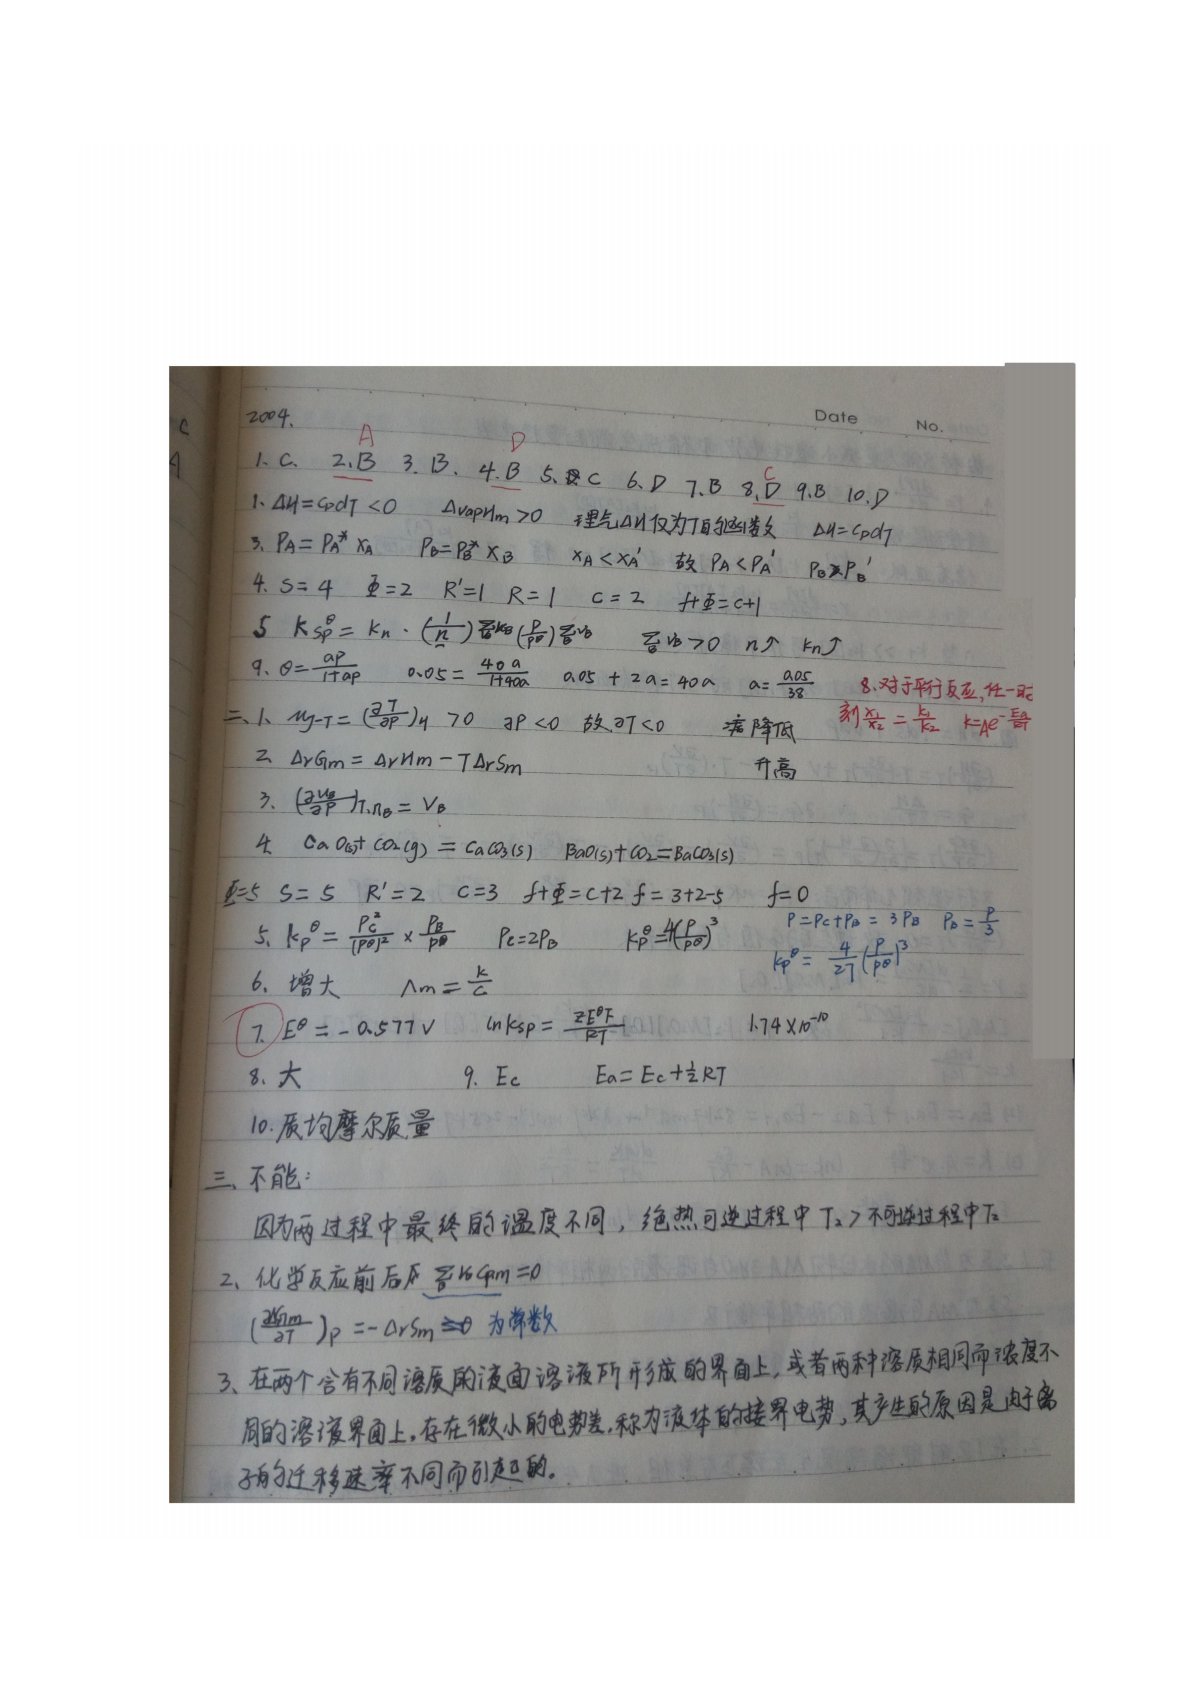 Date No.
2004.
A D C
1. C. 2. B 3. B. 4. B 5. C 6. D 7. B 8. D 9. B 10. D
1. ΔH=CpdT <0 ΔvapHm >0 理气ΔH仅为T的函数 ΔH=CpdT
3. PA=PA* xA PB=PB* xB xA<xA' 故 PA<PA' PB>PB'
4. S=4 Φ=2 R'=1 R=1 C=2 f+Φ=C+1
5 Ksp^θ = Kn · (1/n) (P/P^θ) ΣνB >0 n↑ Kn↑
9. θ= ap/(1+ap) 0.05= 40a/(1+40a) 0.05 + 2a=40a a= 0.05/38
8. 对于平行反应, 任一时
刻 x1/x2 = k1/k2 k=Ae^(-Ea/RT)
二、1. μJ-T = (∂T/∂P)H >0 ∂P<0 故∂T<0 降低
2. ΔrGm = ΔrHm - TΔrSm 升高
3. (∂μB/∂P)T.nB = VB
4. CaO(s)+ CO2(g) = CaCO3(s) BaO(s)+CO2=BaCO3(s)
Φ=5 S=5 R'=2 C=3 f+Φ=C+2 f=3+2-5 f=0
5. Kp^θ = PC²/(P^θ)² × PB/P^θ PC=2PB Kp^θ=4(P/P^θ)³
P=PC+PB = 3PB PB= P/3
Kp^θ = 4/27 (P/P^θ)³
6. 增大 Λm = κ/C
7. E^θ = -0.577V lnKsp = zE^θF/RT 1.74×10^-10
8. 大 9. Ec Ea=Ec+½RT
10. 质均摩尔质量
三、不能:
因为两过程中最终的温度不同, 绝热可逆过程中T2 > 不可逆过程中T2
2、化学反应前后 ΣνBCpm=0
(∂rGm/∂T)P = -ΔrSm 为常数
3、在两个含有不同溶质的液面溶液所形成的界面上, 或者两种溶质相同而浓度不
同的溶液界面上, 存在微小的电势差, 称为液体的接界电势, 其产生的原因是由于离
子的迁移速率不同而引起的。